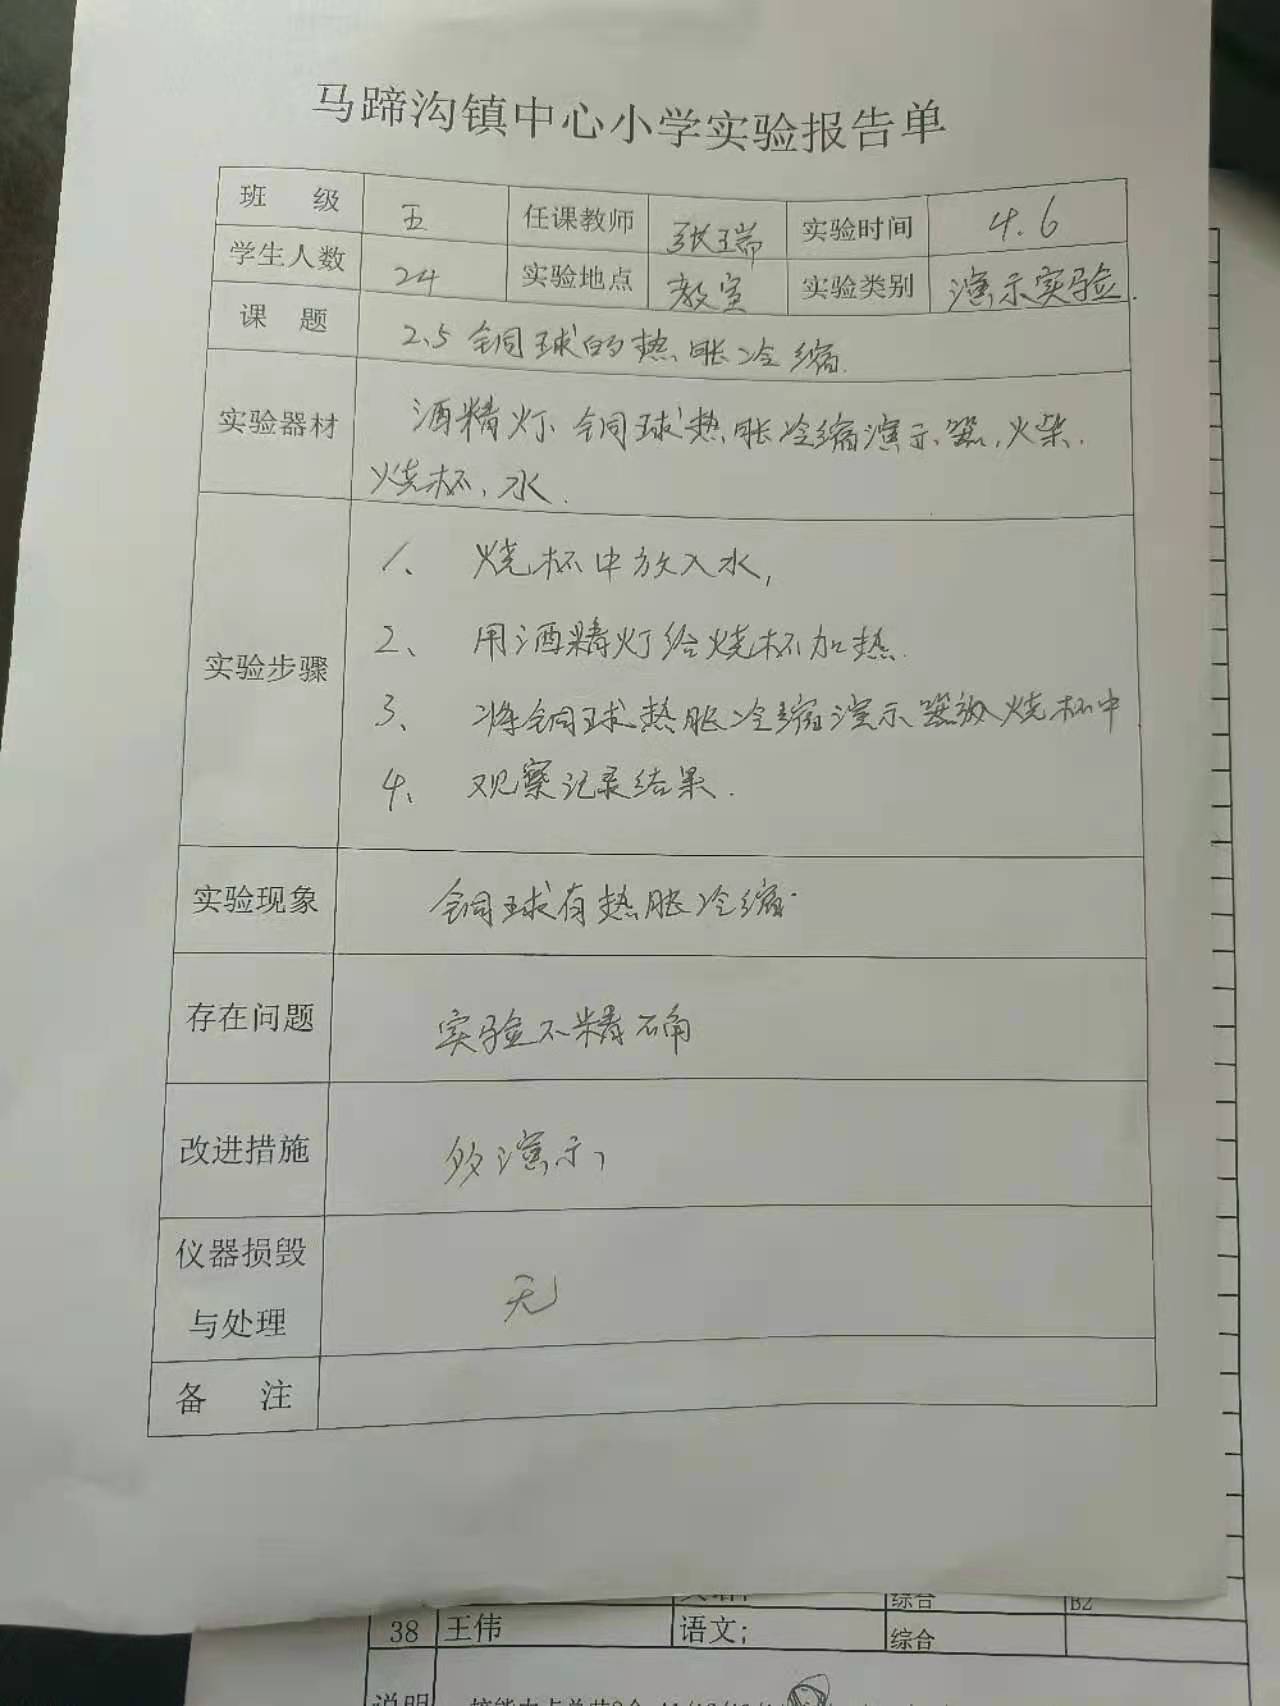 马蹄沟镇中心小学实验报告单
班 级 五 任课教师 张瑞 实验时间 4.6
学生人数 24 实验地点 教室 实验类别 演示实验.
课 题 2.5 铜球的热胀冷缩.
实验器材 酒精灯、铜球热胀冷缩演示器,火柴.
烧杯、水.
实验步骤
1、 烧杯中放入水,
2、 用酒精灯给烧杯加热.
3、 将铜球热胀冷缩演示器放入烧杯中
4、 观察记录结果.
实验现象 铜球有热胀冷缩.
存在问题 实验不精确
改进措施 多演示,
仪器损毁
与处理 无
备 注
综合 B2
38 王伟 语文; 综合
说明